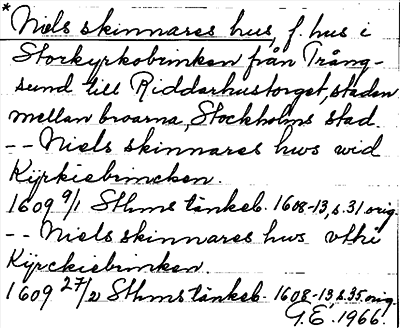 * Niels skinnares hus, f. hus i
Storkyrkobrinken från Trång-
sund till Riddarhustorget, staden
mellan broarna, Stockholms stad.
-- Niels skinnares hws wid
Kÿrkiebrincken.
1609 9/1 Sthms tänkeb. 1608-13, s. 31 orig.
-- Niels skinnares hws vthi
Kÿrckiebrinken.
1609 27/2 Sthms tänkeb. 1608-13 s. 35 orig.
G.E. 1966.